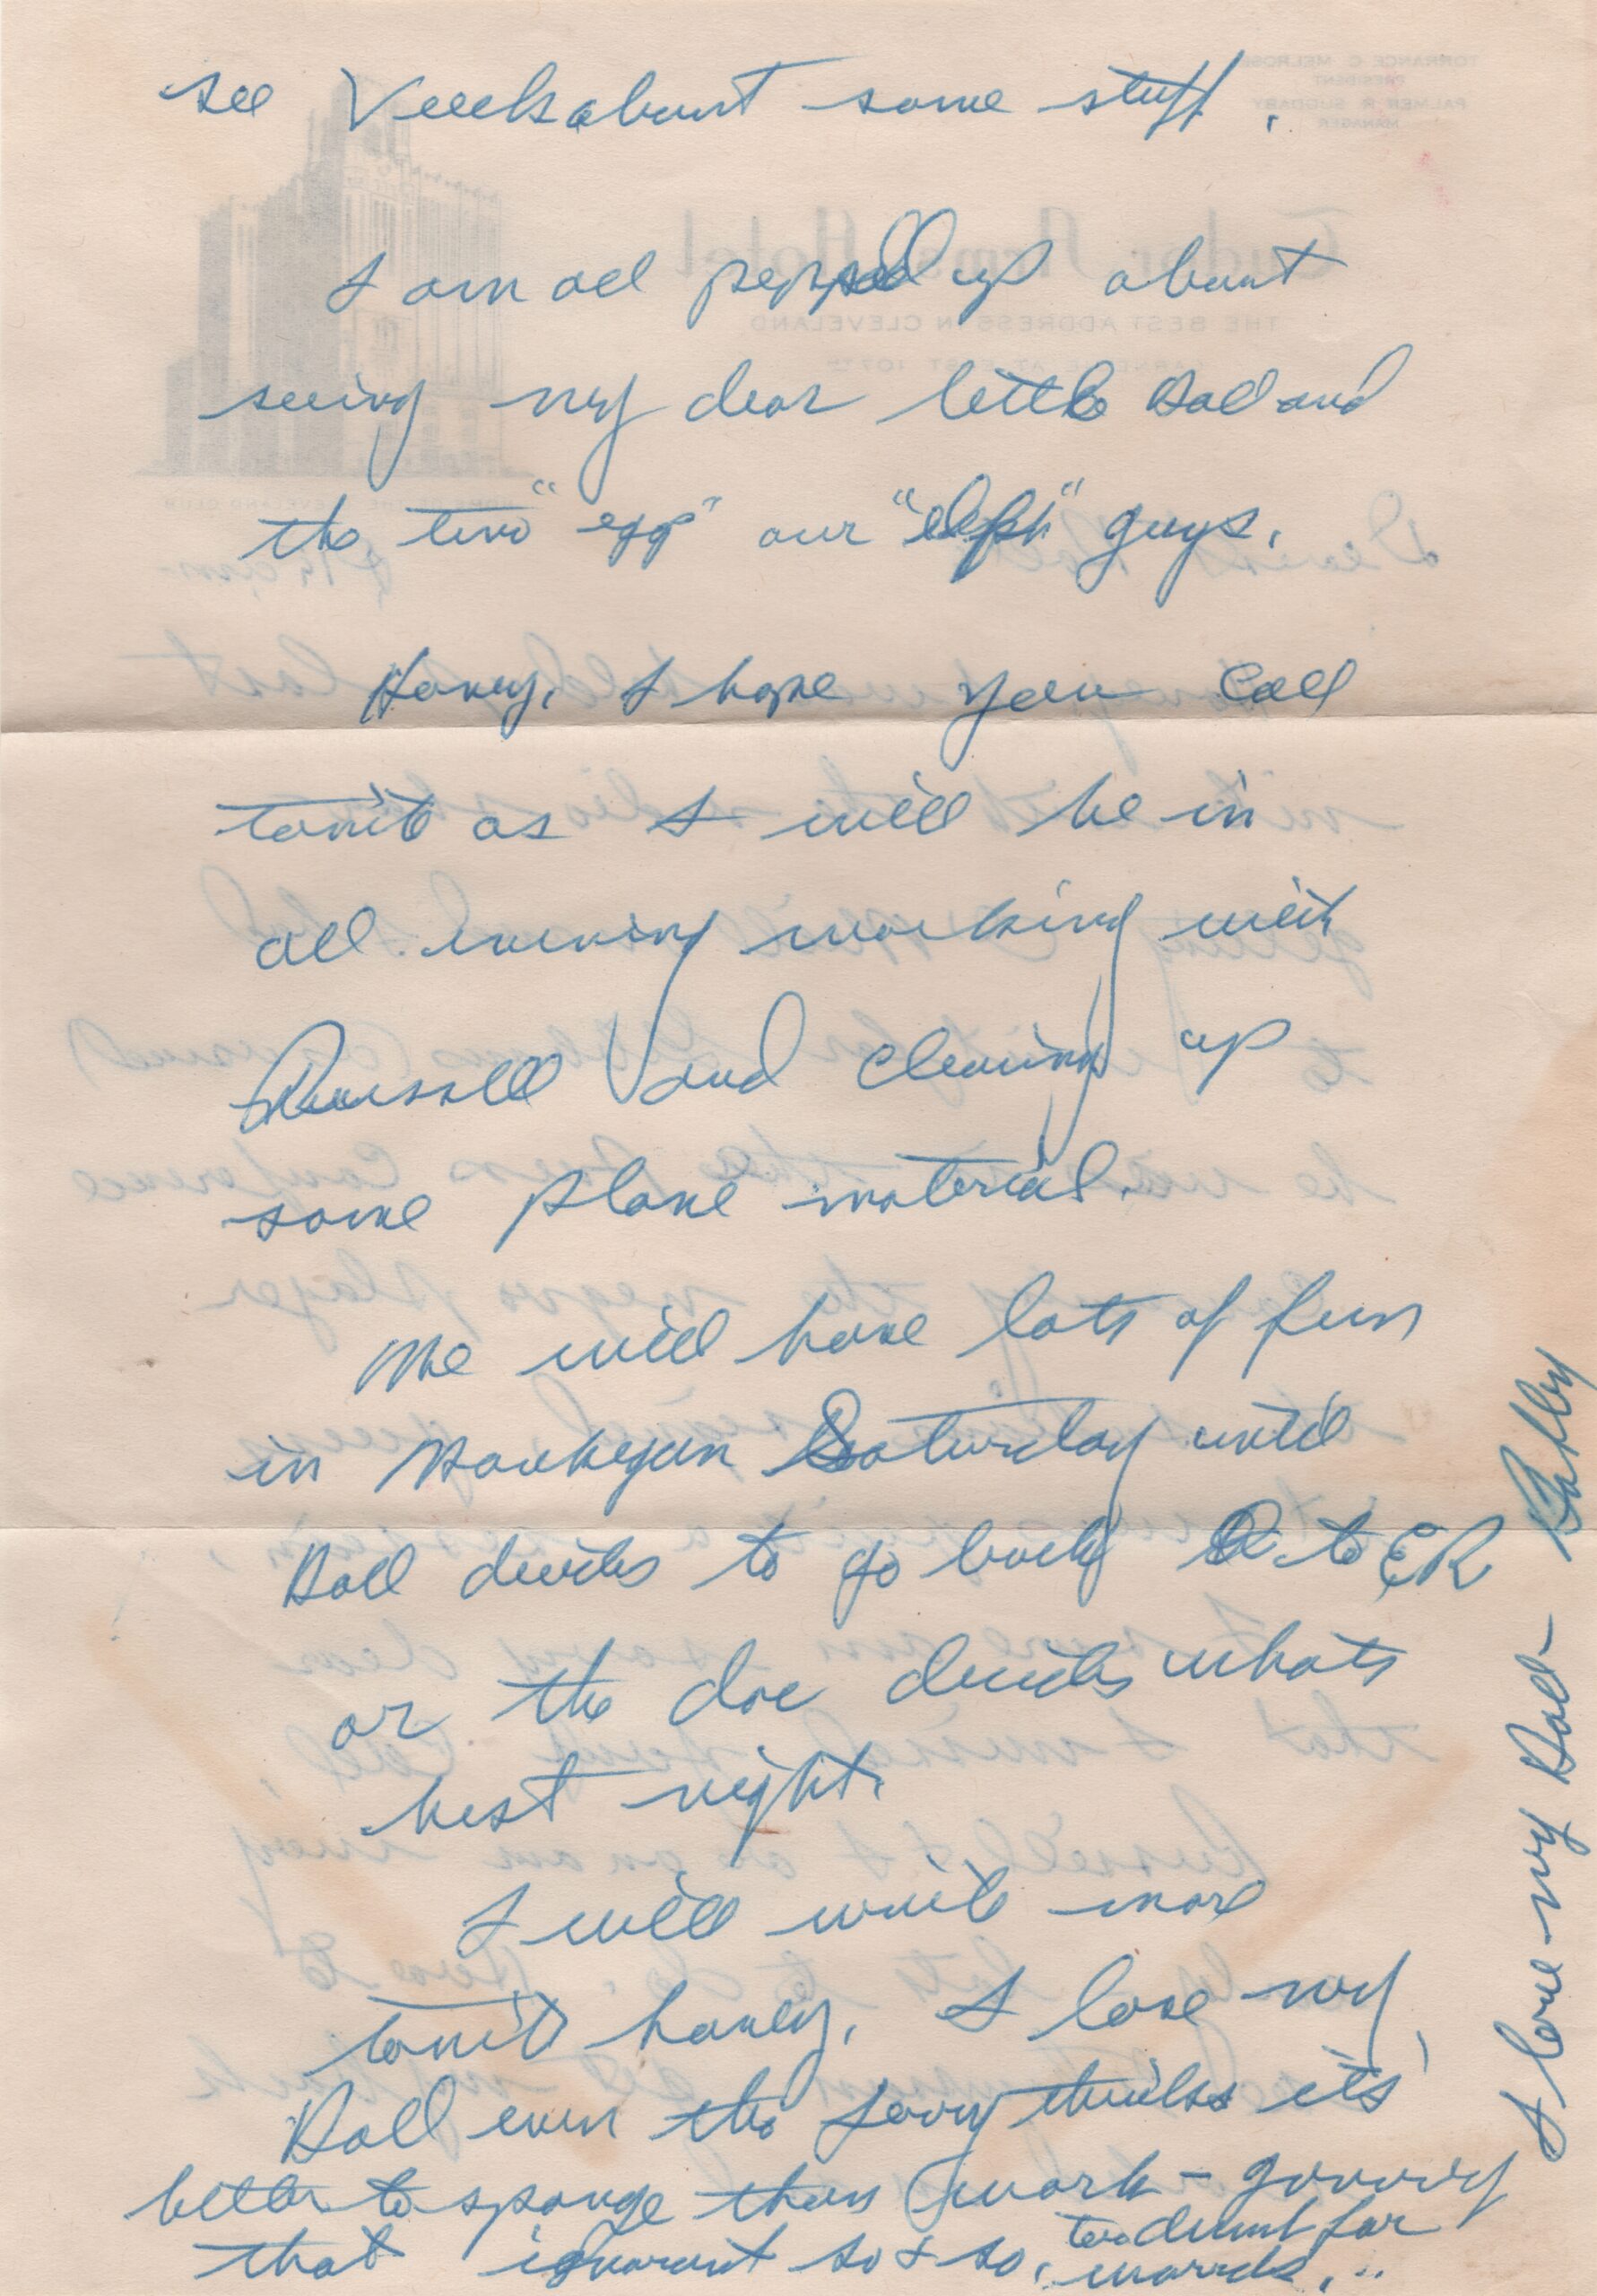 see Veeck about some stuff.
I am all pepped up about
seeing my dear little Doll and
the two "egg" our "eleph" guys.
Honey, I hope you call
tonite as I will be in
all evening working with
Russell and cleaning up
some plane material.
We will have lots of fun
in Waukegan Saturday until
Doll decides to go back to ER
or the doc decides whats
best right.
I will write more
tonite honey. I love my
Doll even tho Jerry thinks its
better to sponge than work -
that ignorant so + so, too dumb for
words...
I love my Doll - Bobby
TORRANCE C. MELROSE
PRESIDENT
PALMER R. SUDDABY
MANAGER
Tudor Arms Hotel
THE BEST ADDRESS IN CLEVELAND